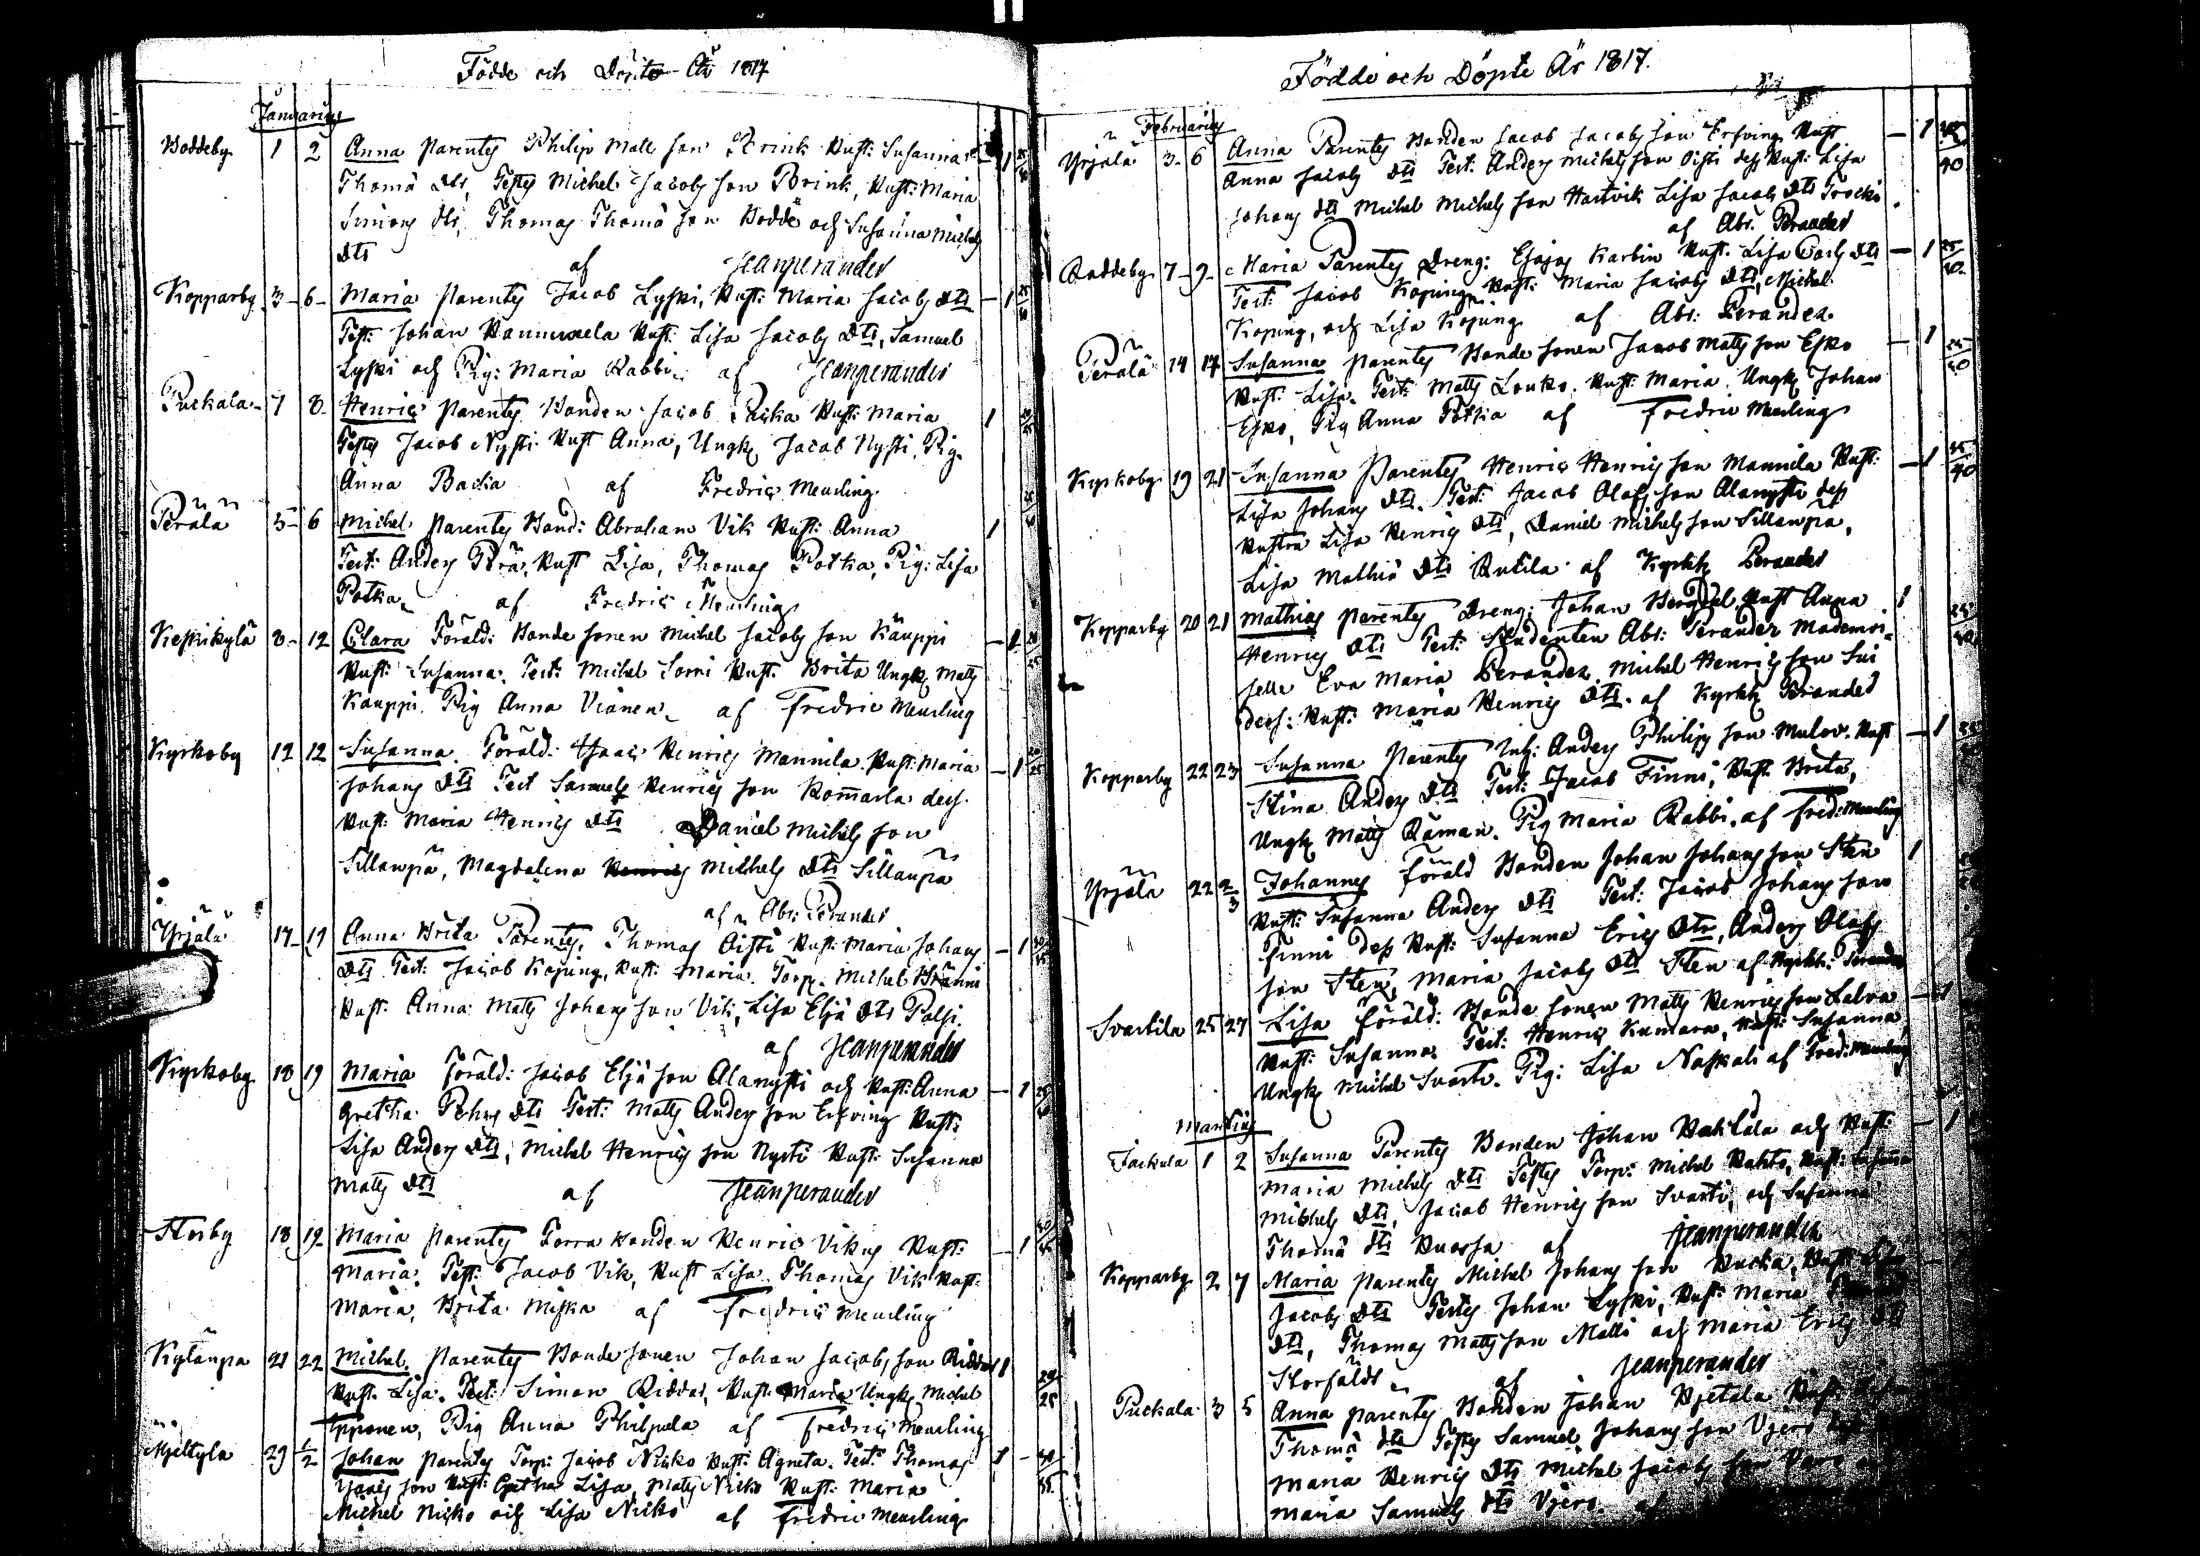 Födde och Döpte År 1817
Januarius
Hoddeby 1 2 Anna Parentes Philip Matts son Brink Hust: Susanna 1
Thomæ Dtr, Testes Michel Jacobs son Brink, Hust: Maria
Simons dtr, Thomas Thomæ son Hodde och Susanna Michels
Dtr af Jeanperander
Kopparby 3 6 Maria Parentes Jacob Lyski, Hust: Maria Jacobs Dtr 1
Test: Johan Hannuxela Hust: Lisa Jacobs Dtr, Samuel
Lyski och Pig: Maria Rabbi af Jeanperander
Puckala 7 8 Henric Parentes Bonden Jacob Packa Hust: Maria 1
Testes Jacob Nysti Hust Anna, Ungk Jacob Nysti, Pig.
Anna Backa af Fredric Meurling
Perälä 5 6 Michel Parentes Bond: Abraham Vik Hust: Anna 1
Test: Anders Perä, Hust Lisa, Thomas Potka, Pig: Lisa
Potka af Fredric Meurling
Keskikylä 8 12 Clara Föräld: Bonde sonen Michel Jacobs son Kauppi 1
Hust: Susanna. Test: Michel Sorri Hust. Brita Ungk Matts
Kauppi. Pig Anna Vianen af Fredric Meurling
Kyrkoby 12 12 Susanna Föräld: Isaac Henrics Mannila Hust: Maria 1
Johans Dtr Test Samuels Henrics son Komarla dess
Hust: Maria Henrics Dtr Daniel Michels son
Sillanpä, Magdalena Michels Dtr Sillanpä
af Abr: Perander
Yrjälä 17 19 Anna Brita Parentes, Thomas Oisti Hust: Maria Johans 1
Dtr Test: Jacob Koping, Hust: Maria. Torp. Michel Bränni
Hust: Anna Matts Johans son Vik, Lisa Eljæ Dtr Polsi
af Jeanperander
Kyrkoby 18 19 Maria Föräld: Jacob Eljæ son Alanysti och Hust: Anna 1
Gretha Pehrs Dtr Test: Matts Anders son Erfving Hust:
Lisa Anders Dtr, Michel Henrics son Nysti Hust: Susanna
Matts Dtr af Jeanperander
Storby 18 19 Maria Parentes Torra bonden Henric Vikns Hust: 1
Maria. Test: Jacob Vik, Hust Lisa Thomas Vik Hust:
Maria, Brita Miska af Fredric Meurling
Kylänpä 21 22 Michel Parentes Bonde sonen Johan Jacobs son Riddar 1
Hust: Lisa. Test: Simon Riddar, Hust: Maria Ungk Michel
Ypponen, Pig Anna Philpula af Fredric Meurling
Mjeltyla 29 1/2 Johan Parentes Torp: Jacob Nisko Hust: Agneta. Test: Thomas 1
Isacs son Hust: Lisa, Matts Nisko Hust: Maria
Michel Nisko och Lisa Nisko af Fredric Meurling
Födde och Döpte År 1817.
Februarius
Yrjälä 3 6 Anna Parentes Bonden Jacob Jacobs son Erfving Hust 1
Anna Jacobs Dtr Test: Anders Michels son Oisti dess Hust: Lisa
Johans dtr Michel Michels son Hartvik Lisa Jacobs Dtr Trocki
af Abr: Perander
Roddeby 7 9 Maria Parentes Dreng: Esajas Karbin Hust. Lisa Carls Dtr 1
Test: Jacob Koping Hust: Maria Jacobs Dtr, Michel
Koping, och Lisa Koping af Abr: Perander
Perälä 14 17 Susanna Parentes Bonde sonen Jacob Matts son Esko 1
Hust: Lisa. Test: Matts Louko. Hust: Maria. Ungk Johan
Esko, Pig Anna Potka af Fredric Meurling
Kyrkoby 19 21 Susanna Parentes Henric Henrics son Mannila Hust: 1
Lisa Johans Dtr. Test: Jacob Olofs son Alanysti dess
Hustru Lisa Henrics Dtr, Daniel Michels son Sillanpä,
Lisa Mathiæ Dtr Rutila af Kyrkh Perander
Kopparby 20 21 Mathias Parentes Dreng: Johan Hust Anna 1
Henrics Dtr Test: Studenten Abr: Perander Mademoi-
selle Eva Maria Perander. Michel Henrics son Sui
dess: Hust: Maria Henrics Dtr. af Kyrkh Perander
Kopparby 22 23 Susanna Parentes Inh: Anders Philips son Mulov. Hust 1
Stina Anders Dtr Test: Jacob Finni, Hust. Brita,
Ungk Matts Räman. Pig Maria Rabbi. af Fred: Meurling
Yrjälä 22 2/3 Johannes Föräld Bonden Johan Johans son Sten 1
Hust: Susanna Anders Dtr Test: Jacob Johans son
Finni dess Hust: Susanna Erics Dtr, Anders Olofs
son Sten, Maria Jacobs Dtr Sten af Kyrkh: Perander
Svartila 25 27 Lisa Föräld: Bonde sonen Matts Henrics son Lalva 1
Hust: Susanna Test: Henric Kamara, Hust: Susanna
Ungk Michel Svarti. Pig: Lisa Naskali af Fred: Meurling
Martius
Jackula 1 2 Susanna Parentes Bonden Johan Vakkila och Hust: 1
Maria Michels Dtr Testes Torp: Michel Vahto, Hust: Susanna
Michels Dtr, Jacob Henrics son Svarti, och Susanna
Thomæ dtr Kuossa af Jeanperander
Kopparby 2 7 Maria Parentes Michel Johans son Packa, Hust:
Jacobs Dtr Testes Johan Lyski, Hust: Maria
Dtr, Thomas Matts son Malli och Maria Erics Dtr
Storfäldt af Jeanperander
Puckala 3 5 Anna Parentes Bonden Johan Hjetala Hust:
Thomæ dtr Testes Samuel Johans son Vjero
Maria Henrics Dtr Michel Jacobs son
Maria Samuels Dtr Vjero. af